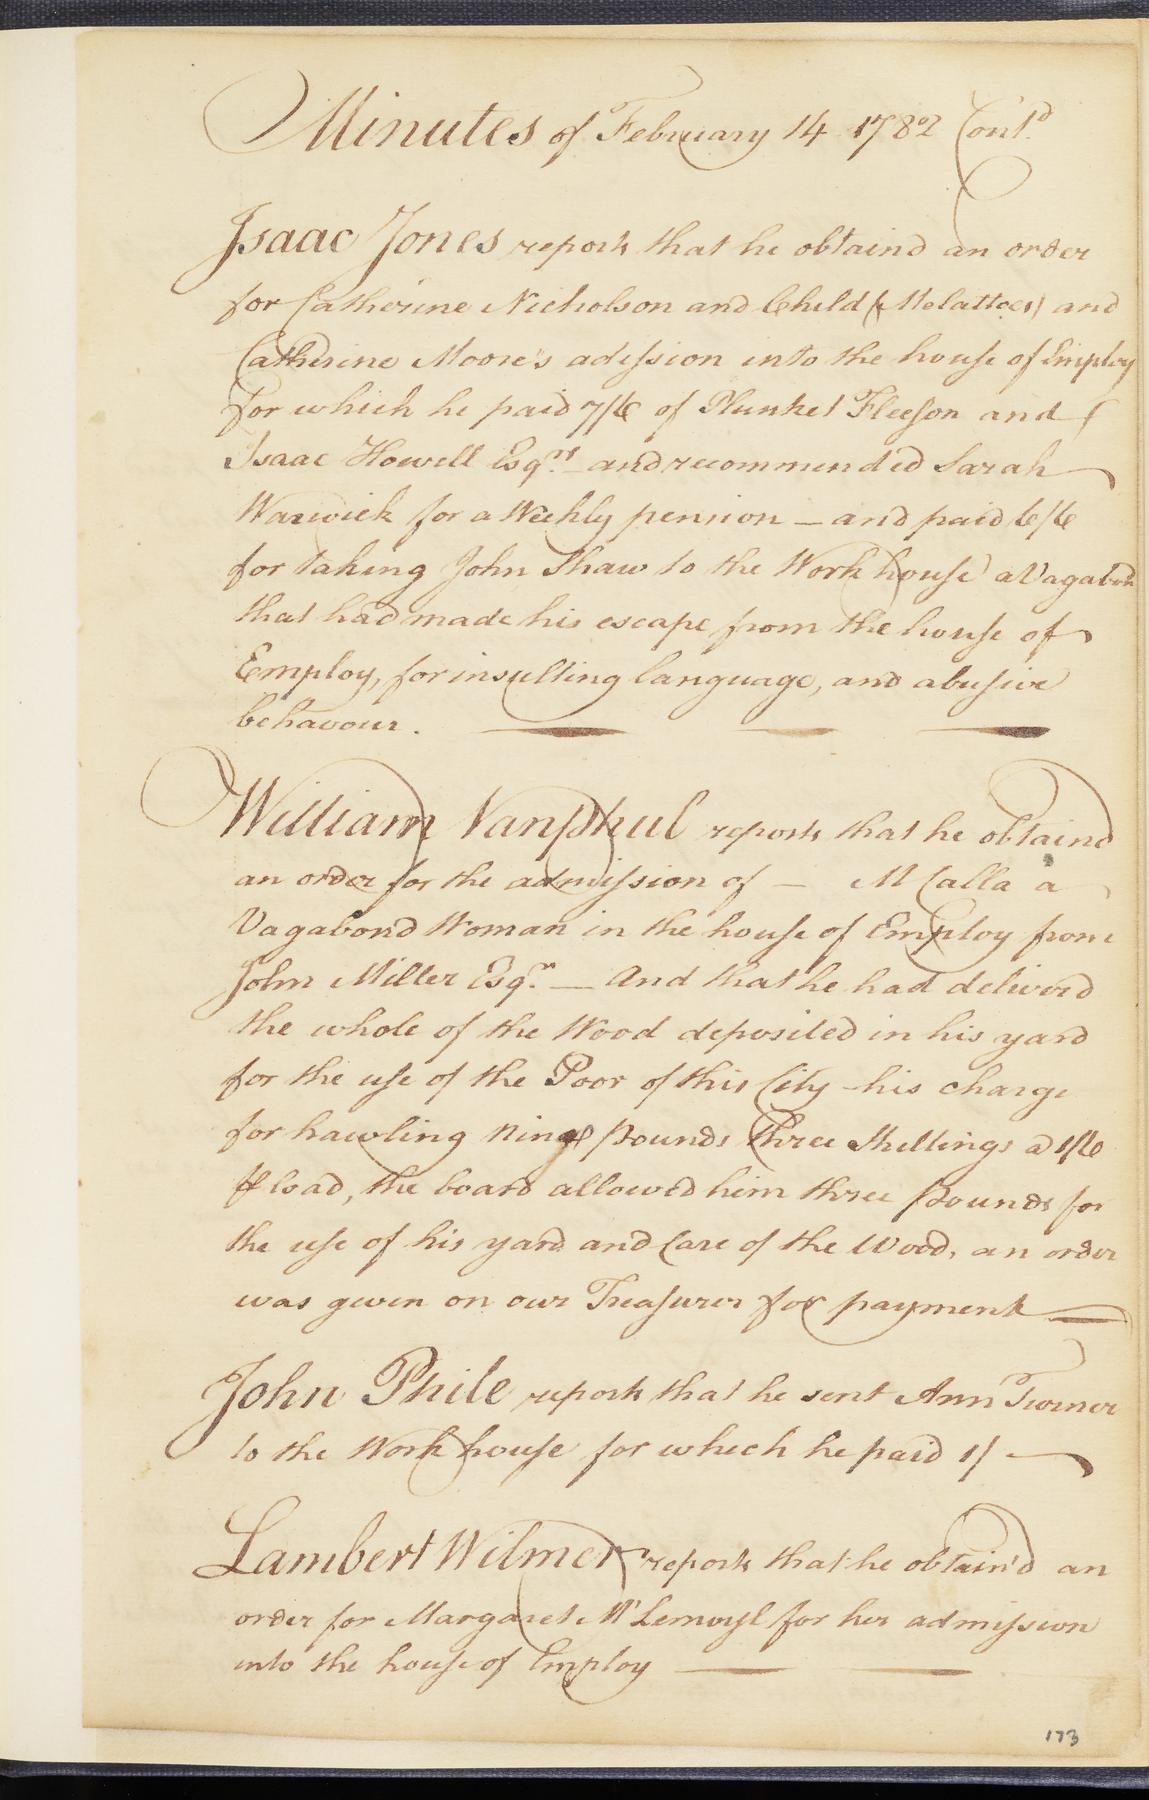 Minutes of February 14 1782 Contd
Isaac Jones reports that he obtaind an order
for Catherine Nicholson and Child (Melattoes) and
Catherine Moore's adission into the house of Employ
For which he paid 7/6 of Plunket Fleeson and
Isaac Howell Esqrs and recommended Sarah
Warwick for a Weekly pension — and paid 6/6
for taking John Shaw to the Work house a Vagabond
that had made his escape from the house of
Employ, for insulting language, and abusive
behavour.
William Vanphul reports that he obtaind
an order for the admission of — McCalla a
Vagabond Woman in the house of Employ from
John Miller Esqr. — And that he had deliverd
the whole of the Wood deposited in his yard
for the use of the Poor of this City - his charge
for hawling nine pounds three Shillings @ 1/6
⅌ load, the board allowed him three pounds for
the use of his yard and Care of the Wood, an order
was given on our Treasurer for payment —
John Phile reports that he sent Ann Turner
to the Work house for which he paid 1/ —
Lambert Wilmer reports that he obtain'd an
order for Margaret for her admission
into the house of Employ —
173